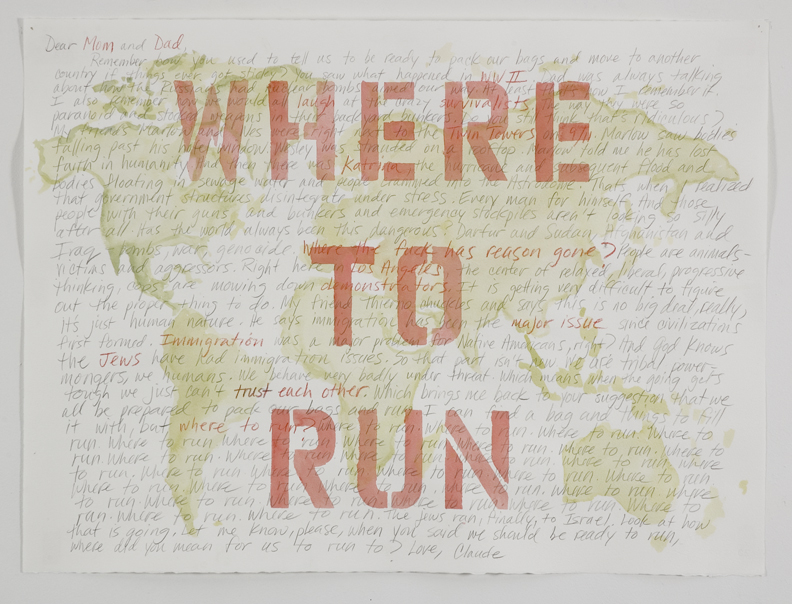 Dear Mom and Dad
Remember how you used to tell us to be ready to pack our bags and move to another
country if things ever got sticky? You saw what happened in WW II. Dad was always talking
about how the Russians had nuclear bombs aimed our way. At least that's how I remember it.
I also remember you would all laugh at the crazy survivalists the way they were so
paranoid and stocked weapons in their backyard bunkers. Do you still think that's ridiculous?
My friends Marlow and were right next to the Twin Towers on 9/11. Marlow saw bodies
falling past his hotel window. Wesley was stranded on a rooftop. Marlow told me he has lost
faith in humanity. And then there was Katrina, the hurricane and subsequent flood and
bodies floating in sewage water and people crammed into the Astrodome. That's when I realized
that government structures disintegrate under stress. Every man for himself. And those
people with their guns and bunkers and emergency stockpiles aren't looking so silly
after all. Has the world always been this dangerous? Darfur and Sudan, Afghanistan and
Iraq, bombs, war, genocide. Where the fuck has reason gone? People are animals-
victims and aggressors. Right here in Los Angeles, the center of relaxed, liberal, progressive
thinking, cops are mowing down demonstrators. It is getting very difficult to figure
out the proper thing to do. My friend Thierno chuckles and says this is no big deal, really,
it's just human nature. He says immigration has been the major issue since civilizations
first formed. Immigration was a major problem for Native Americans, right? And God knows
the Jews have had immigration issues. So that part isn't new. We are tribal power-
mongers, we humans. We behave very badly under threat. Which means when the going gets
tough we just can't trust each other. Which brings me back to your suggestion that we
all be prepared to pack our bags and run. I can find a bag and things to fill
it with, but where to run? Where to run. Where to run. Where to run. Where to
run. Where to run where to run. Where to run where to run. Where to run. Where to
run. Where to run. Where to run. Where to run. Where to run. where to run. Where
to run. Where to run. Where to run. Where to run. Where to run. Where to run.
Where to run. Where to run. Where to run. Where to run. Where to run. Where
to run. Where to run. Where to run. Where to run. Where to run. where to
run. Where to run. Where to run. The Jews ran, finally, to Israel. Look at how
that is going. Let me know, please, when you said we should be ready to run,
where did you mean for us to run to? Love, Claude
WHERE
TO
RUN